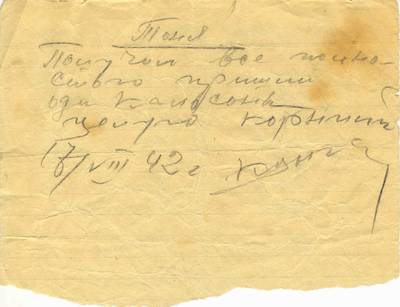 Тоня
Получил все полно-
стью пришли
одни кальсоны
целую Корнилий
17/VIII 42 г